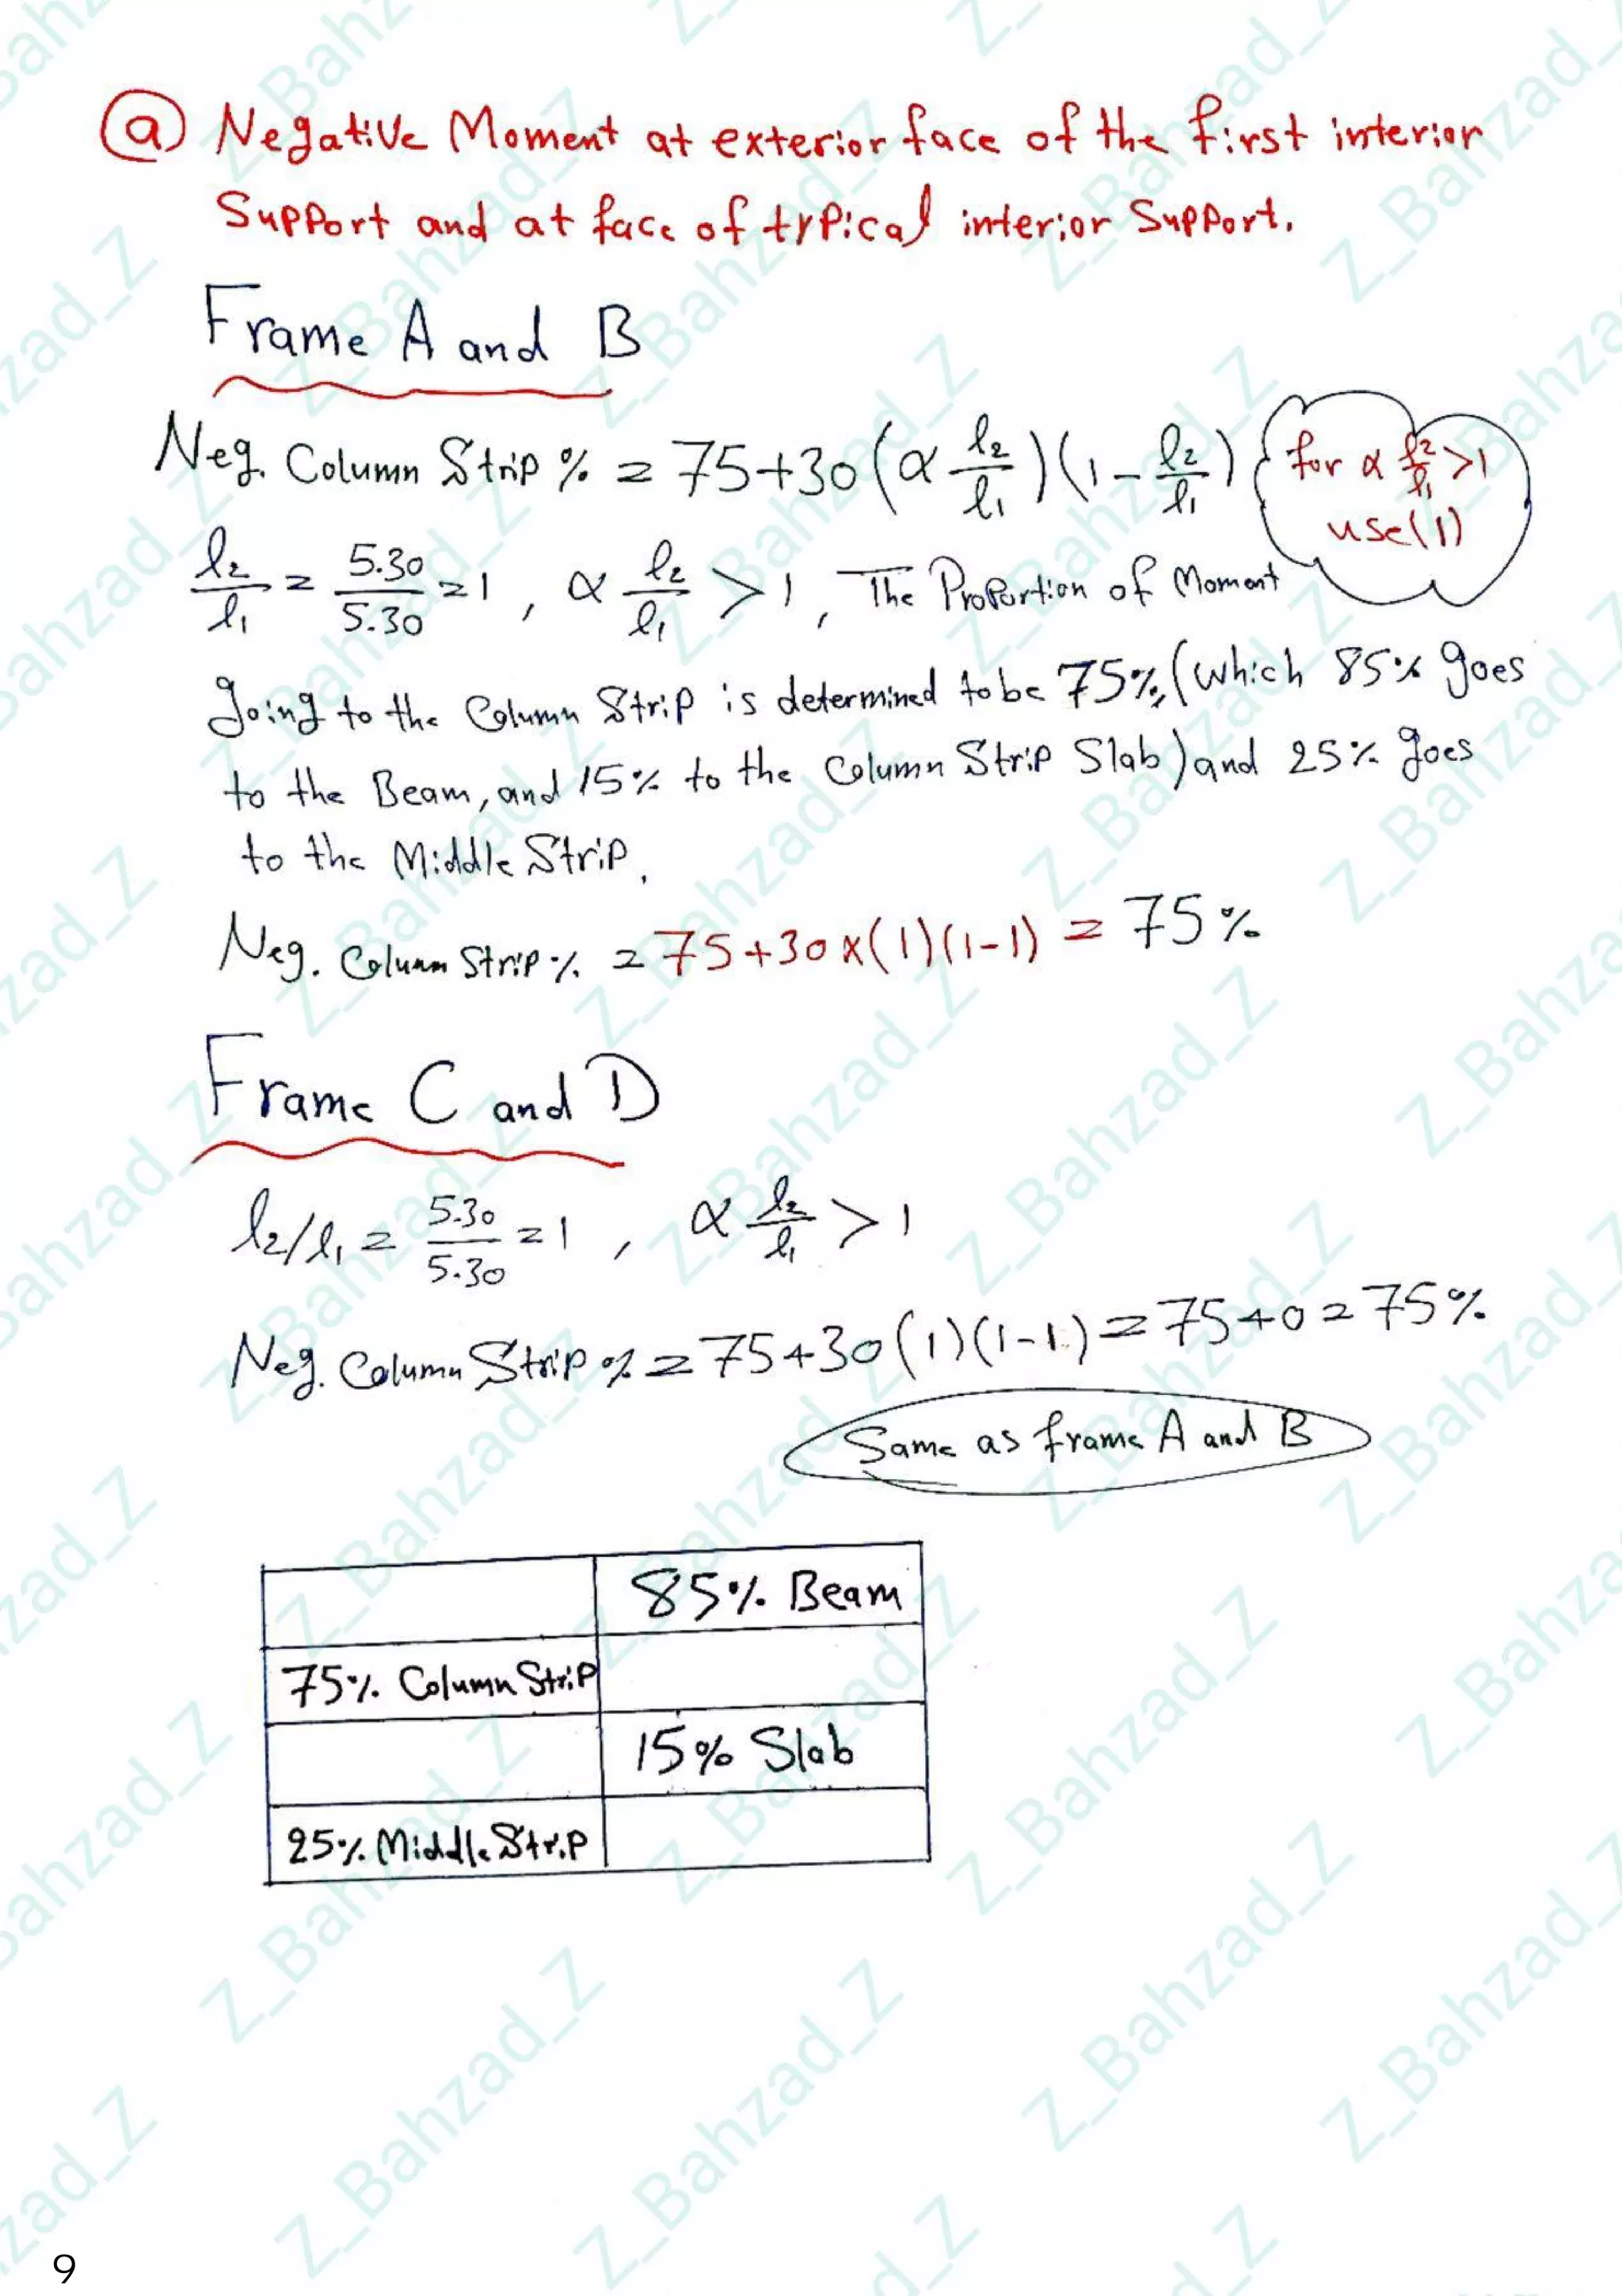 (a) Negative Moment at exterior face of the first interior
Support and at face of typical interior Support.
Frame A and B
Neg. Column Strip % = 75+30(α l₂/l₁)(1-l₂/l₁) {for α l₂/l₁ >1
use(1)
l₂/l₁ = 5.30/5.30 =1 , α l₂/l₁ >1, The Proportion of Moment
going to the Column Strip is determined to be 75%,(which 85% goes
to the Beam, and 15% to the Column Strip Slab) and 25% goes
to the Middle Strip.
Neg. Column Strip % = 75+30x(1)(1-1) = 75%
Frame C and D
l₂/l₁ = 5.30/5.30 =1 , α l₂/l₁ >1
Neg. Column Strip % = 75+30(1)(1-1)=75+0=75%
Same as frame A and B
85% Beam
75% Column Strip
15% Slab
25% Middle Strip
9
Z_Bahzad_Z